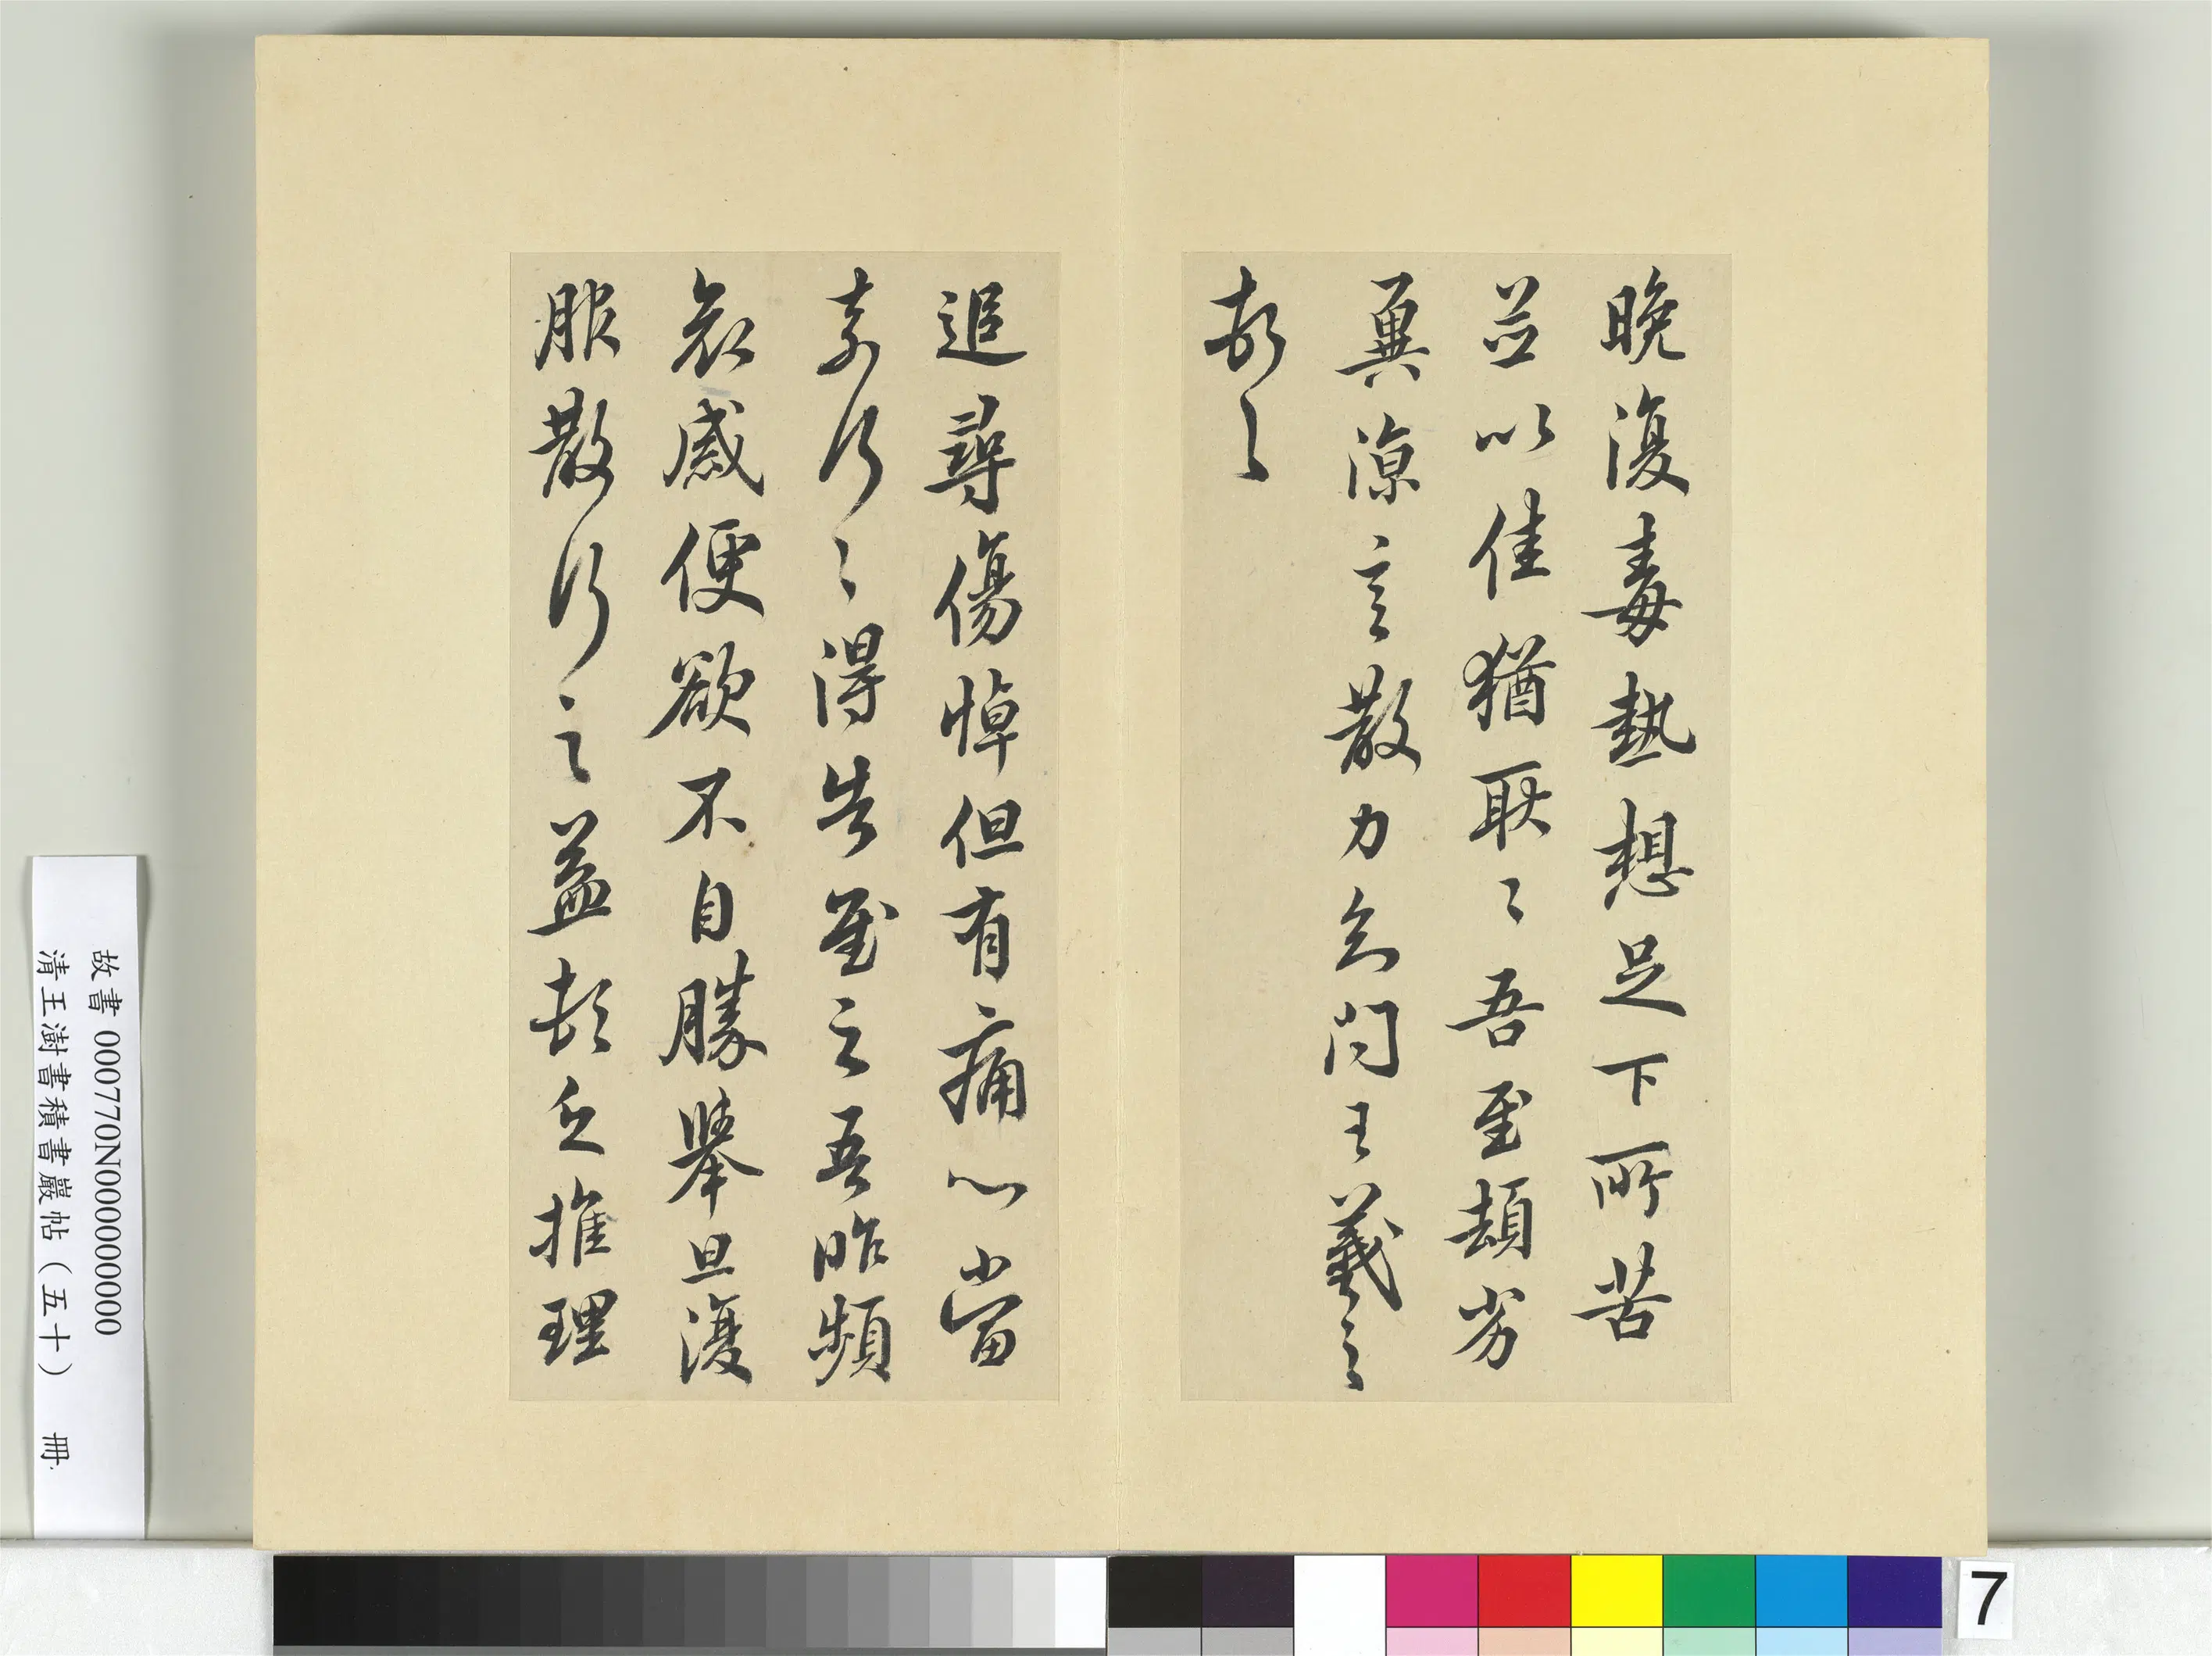 晚復毒熱想足下所苦
並以佳猶耿〻吾至頓劣
冀涼言散力知問王羲之
頓首
追尋傷悼但有痛心當
奈何〻得告慰之吾昨頻
哀感便欲不自勝舉旦復
服散行之益頓乏推理
故書 000770N000000000
清王澍書積書巖帖（五十） 冊
7